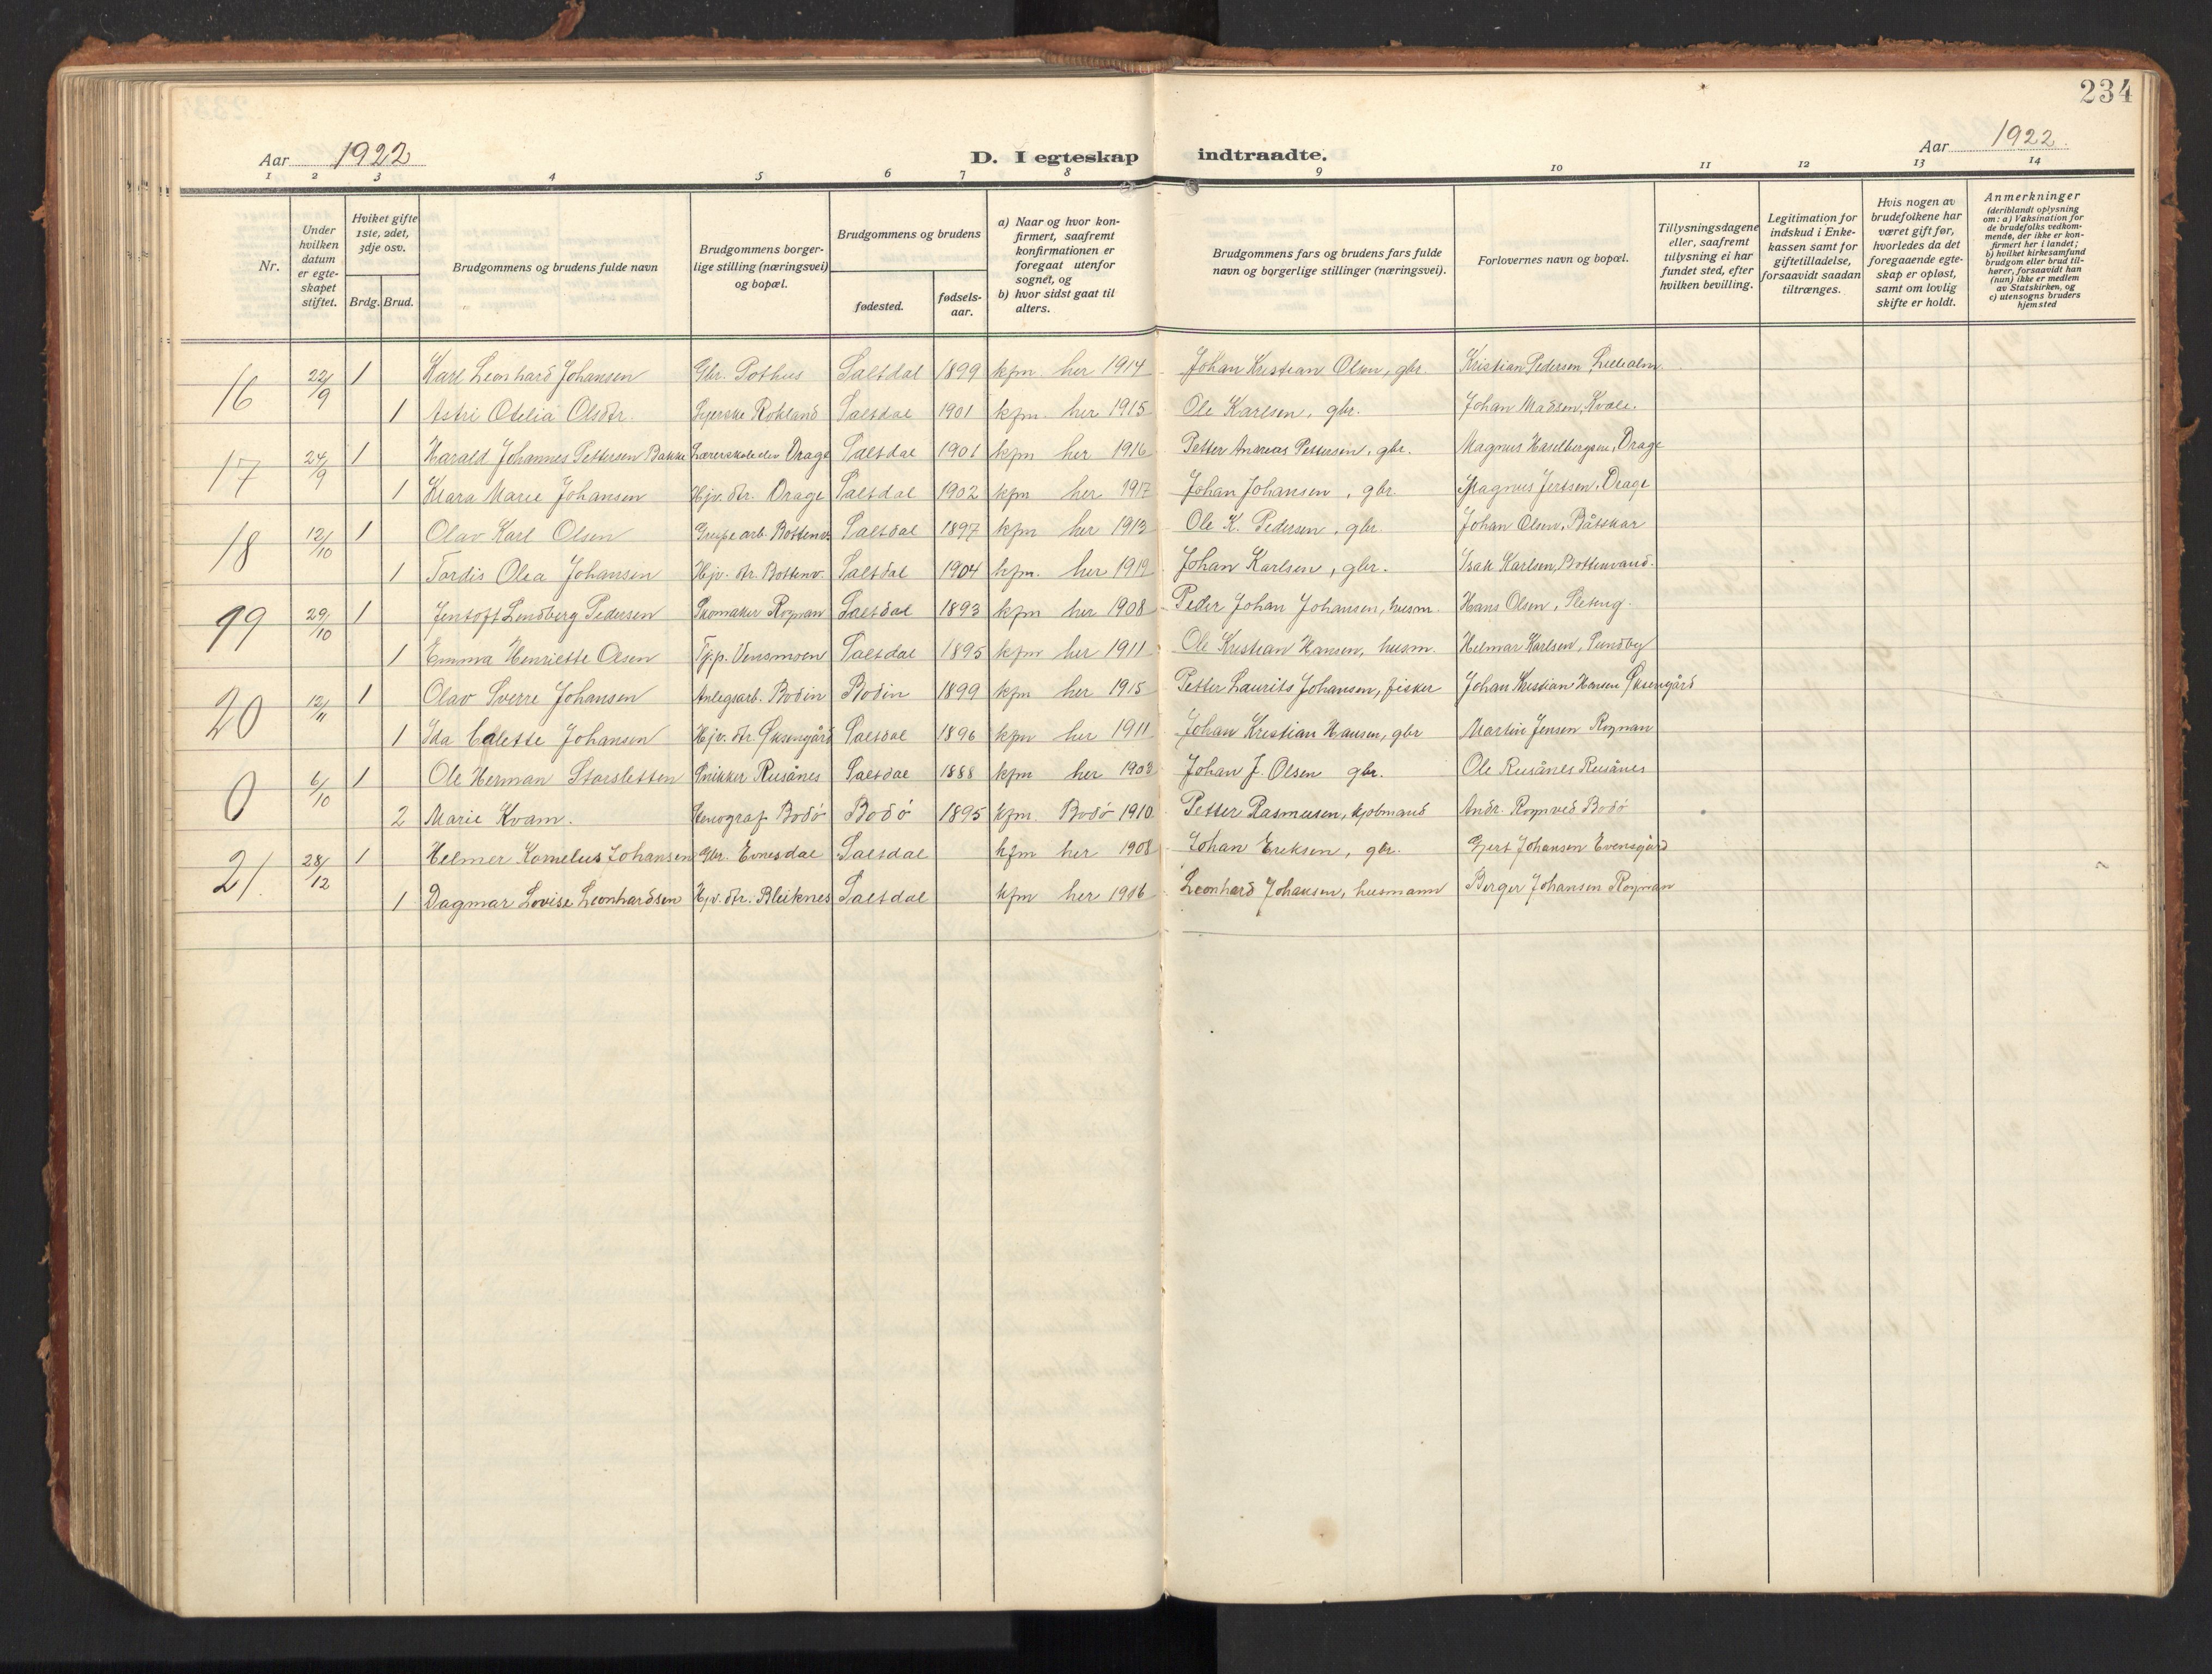 234
Aar 1922
D. I egteskap indtraadte.
Aar 1922.
1 2 3 4 5 6 7 8 9 10 11 12 13 14
Nr.
Under hvilken datum er egteskapet stiftet.
Hviket gifte 1ste, 2det, 3dje osv.
Brdg. Brud.
Brudgommens og brudens fulde navn
Brudgommens borgerlige stilling (næringsvei) og bopæl.
Brudgommens og brudens
fødested.
fødselsaar.
a) Naar og hvor konfirmert, saafremt konfirmationen er foregaat utenfor sognet, og
b) hvor sidst gaat til alters.
Brudgommens fars og brudens fars fulde navn og borgerlige stillinger (næringsvei).
Forlovernes navn og bopæl.
Tillysningsdagene eller, saafremt tillysning ei har fundet sted, efter hvilken bevilling.
Legitimation for indskud i Enkekassen samt for giftetilladelse, forsaavidt saadan tiltrænges.
Hvis nogen av brudefolkene har været gift før, hvorledes da det foregaaende egteskap er opløst, samt om lovlig skifte er holdt.
Anmerkninger
(deriblandt oplysning om: a) Vaksination for de brudefolks vedkommende, der ikke er konfirmert her i landet; b) hvilket kirkesamfund brudgom eller brud tilhører, forsaavidt han (hun) ikke er medlem av Statskirken, og c) utensogns bruders hjemsted
16 22/9 1 Karl Leonhard Johansen Gbr. Pothus Saltdal 1899 kfm her 1914 Johan Kristian Olsen, gbr. Kristian Pedersen Lillealm
1 Astri Otelia Olsdtr. Syerske Rokland Saltdal 1901 kfm her 1915 Ole Karlsen, gbr. Johan Madsen, Kvale.
17 24/9 1 Harald Johannes Pettersen Bakke Lærerskoleelev Drage Saltdal 1901 kfm her 1916 Petter Andreas Pettersen, gbr. Magnus Haselbergsen, Drage
1 Klara Marie Johansen Hjv. dtr. Drage Saltdal 1902 kfm her 1917 Johan Johansen, gbr. Magnus Jertsen, Drage
18 12/10 1 Olav Karl Olsen Grube arb. Bottenv. Saltdal 1897 kfm her 1913 Ole K. Pedersen, gbr. Johan Olsen, Båtskar
1 Tordis Olea Johansen Hjv. dtr. Bottenv. Saltdal 1904 kfm. her 1919 Johan Karlsen, gbr. Isak Karlsen, Bottenvand.
19 29/10 1 Jentoft Lindberg Pedersen Skomaker Rognan Saltdal 1893 kfm her 1908 Peder Johan Johansen, husm. Hans Olsen, Sleteng.
1 Emma Henriette Olsen Tj.p. Vensmoen Saltdal 1895 kfm her 1911 Ole Kristian Hansen, husm. Helmar Karlsen, Sundby
20 12/11 1 Olav Sverre Johansen Anlegsarb. Bodin Bodin 1899 kfm her 1915 Petter Laurits Johansen, fisker Johan Kristian Hansen Øksengård
1 Ida Colette Johansen Hjv. dtr. Øksengård Saltdal 1896 kfm her 1911 Johan Kristian Hansen, gbr Martin Jensen Rognan
0 6/10 1 Ole Herman Storsletten Snikker Rusånes Saltdal 1888 kfm her 1903 Johan J. Olsen gbr. Ole Rusånes Rusånes
2 Marie Kvam. Stenograf Bodø Bodø 1895 kfm. Bodø 1910 Petter Rasmusen, kjøbmand Andr. Rognved Bodø
21. 28/12 1 Helmer Kornelius Johansen Gbr. Evnesdal Saltdal kfm her 1908 Johan Eriksen, gbr. Gjert Johansen Evensgård
1 Dagmar Lovise Leonhardsen Hjv. dtr. Bleiknes Saltdal kfm her 1916 Leonhard Johansen, husmann Berger Johansen Rognan